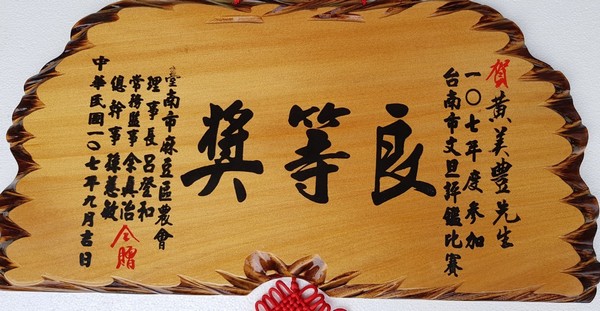 賀黃美豐先生
一〇七年度參加
台南市文旦評鑑比賽
良等獎
臺南市麻豆區農會
理事長呂登和
常務監事余真治
總幹事孫慈敏
仝贈
中華民國一〇七年九月吉日